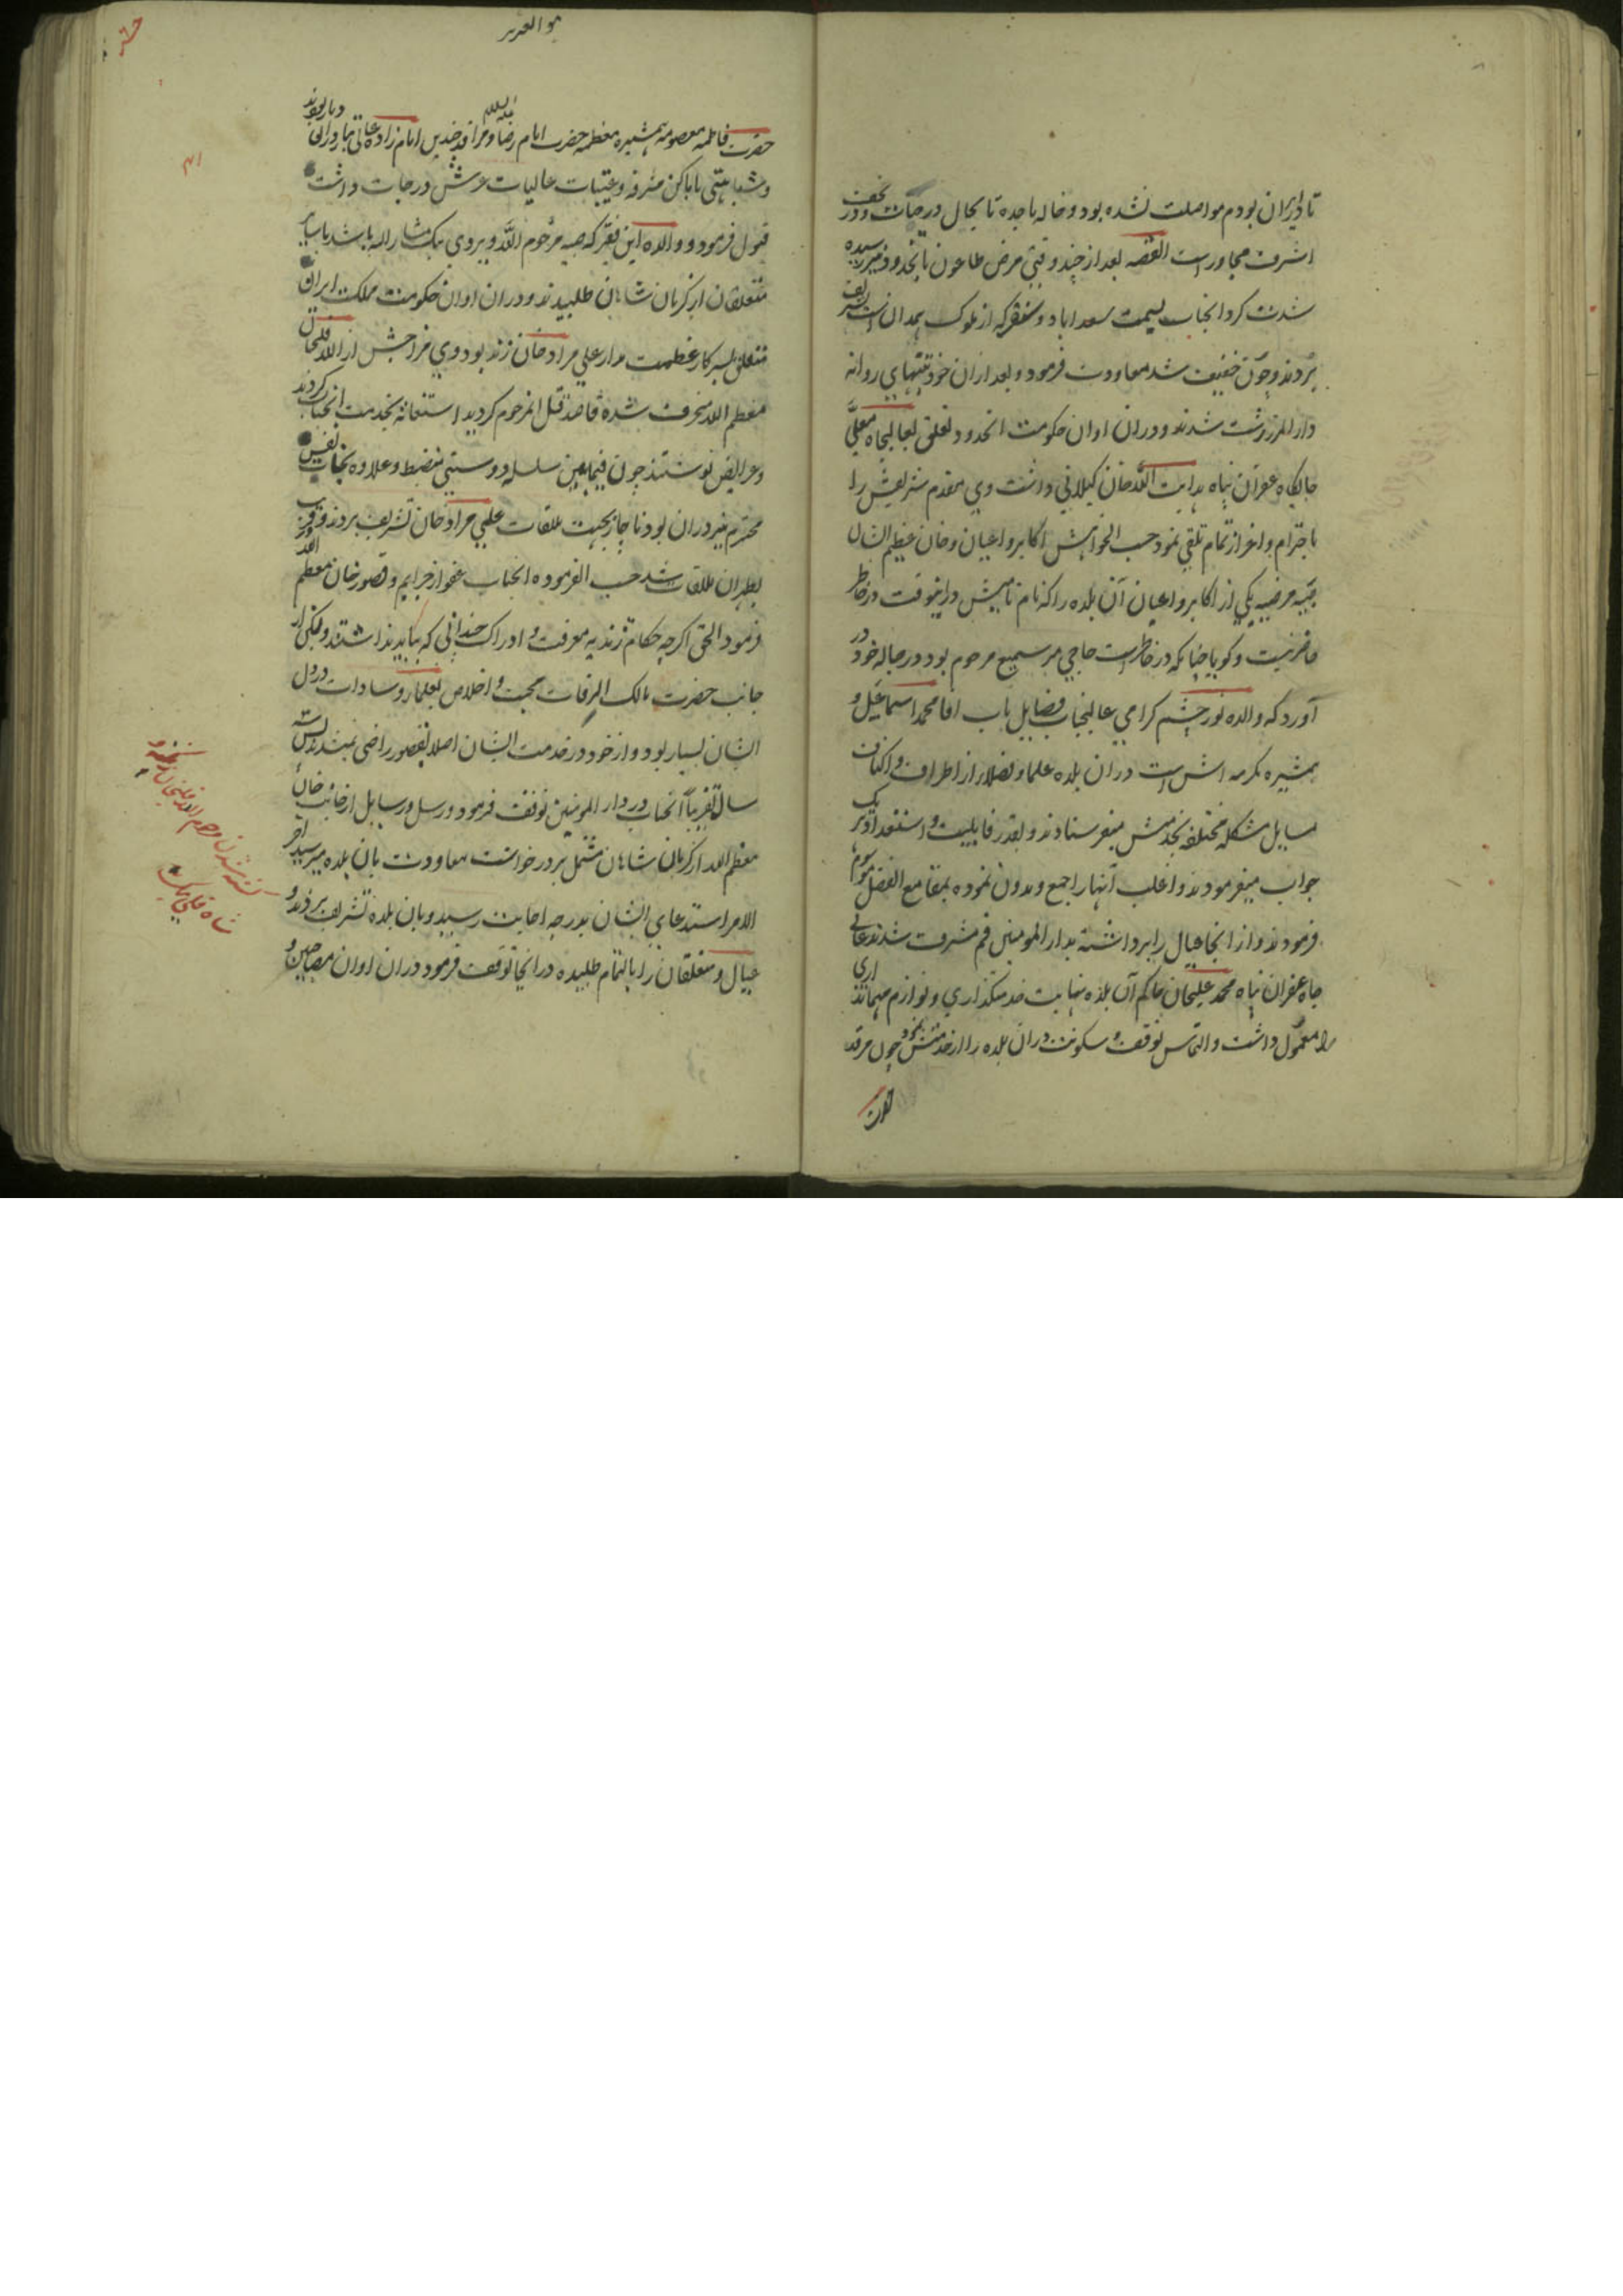 تا در ایران بودم مواصلت نشده بود و خاله ماجده تا بحال در حیات و در نجف
اشرف مجاور است القصه بعد از چند وقتی مرض طاعون بانحدود نیز رسیده
شدت کرد انجناب بسمت سعداباد و که از بلوک همدان است تشریف
بردند و چون خفیف شد معاودت فرمود و بعد ازان خود بتنهایی روانه
دار المرز رشت شدند و دران اوان حکومت انحدود تعلق بعالیجاه معلی
جایگاه غفران پناه هدایت الله خان کیلانی داشت وی مقدم شریفش را
باحترام و اعزاز تمام تلقی نمود حسب الخواهش اکابر و اعیان و خان عظیم الشان
صبیه مرضیه یکی از اکابر و اعیان آن بلده را که نام نامیش درینوقت در خاطر
حاضر نیست و کویا چنانکه در خاطر است حاجی میر سمیع مرحوم بود در حباله خود در
آورد که والده نور چشم کرامی عالیجناب فضایل ماب اقا محمد اسماعیل و
همشیره مکرمه اش است دران بلده علما و فضلا از اطراف و اکناف
مسایل مشکله مختلفه بخدمتش میفرستادند و بقدر قابلیت و استعداد هر یک
جواب میفرمودند و اغلب آنها را جمع و مدون نموده بمقامع الفضل موسوم
فرمودند و از انجا عیال را برداشته بدار المومنین قم مشرف شدند عالی
جاه غفران پناه محمد علیخان حاکم آن بلده نهایت خدمتکذاری و لوازم مهمانداری
را معمول داشت و التماس توقف و سکونت دران بلده را از خدمتش نمود چون مرقد
حضرت
هو العزیز
حضرت فاطمه معصومه همشیره معظمه حضرت امام رضا علیه السلام و مراقد چندین امام زاده عالی تبار در آن دیار بودند
و شباهتی باماکن مشرفه و عتبات عالیات عرش درجات داشت
قبول فرمود و والده این فقیر که صبیه مرحوم الله ویردی بیک مشار الیه باشد با سایر
متعلقان از کرمان شاهان طلبیدند و دران اوان حکومت مملکت ایران
متعلق بسرکار عظمت مدار علی مراد خان زند بود و وی مزاجش از الله قلیخان
معظم الیه منحرف شده قاصد قتل انمرحوم کردید استغاثه بخدمت انجناب کردند
و عرایض نوشتند چون فیمابین سلسله دوستی منضبط و علاوه نجات نفس
محترم نیز دران بود ناچار بجهت ملاقات علی مراد خان تشریف بردند و در قرب
طهران ملاقات شد حسب الفرموده انجناب عفو از جرایم و قصور خان معظم الیه
فرمود الحق اکرچه حکام زندیه معرفت و ادراک چندانی که باید نداشتند ولیکن از
جانب حضرت مالک الرقاب محبت و اخلاص بعلماء و سادات در دل
ایشان بسیار بود و از خود در خدمت ایشان اصلا بقصور راضی نمیشدند سه
سال تقریبا آنجناب در دار المومنین توقف فرمود و رسل و رسایل از جانب خان
معظم الیه از کرمان شاهان مشتمل بر درخواست معاودت بان بلده میرسید آخر
الامر استدعای ایشان بدرجه اجابت رسید و بان بلده تشریف بردند و
عیال و متعلقان را بالتمام طلبیده در انجا توقف فرمود دران اوان مصاحبین و
کشته شدن مرحوم الله قلیخان
شاه قلی بیک